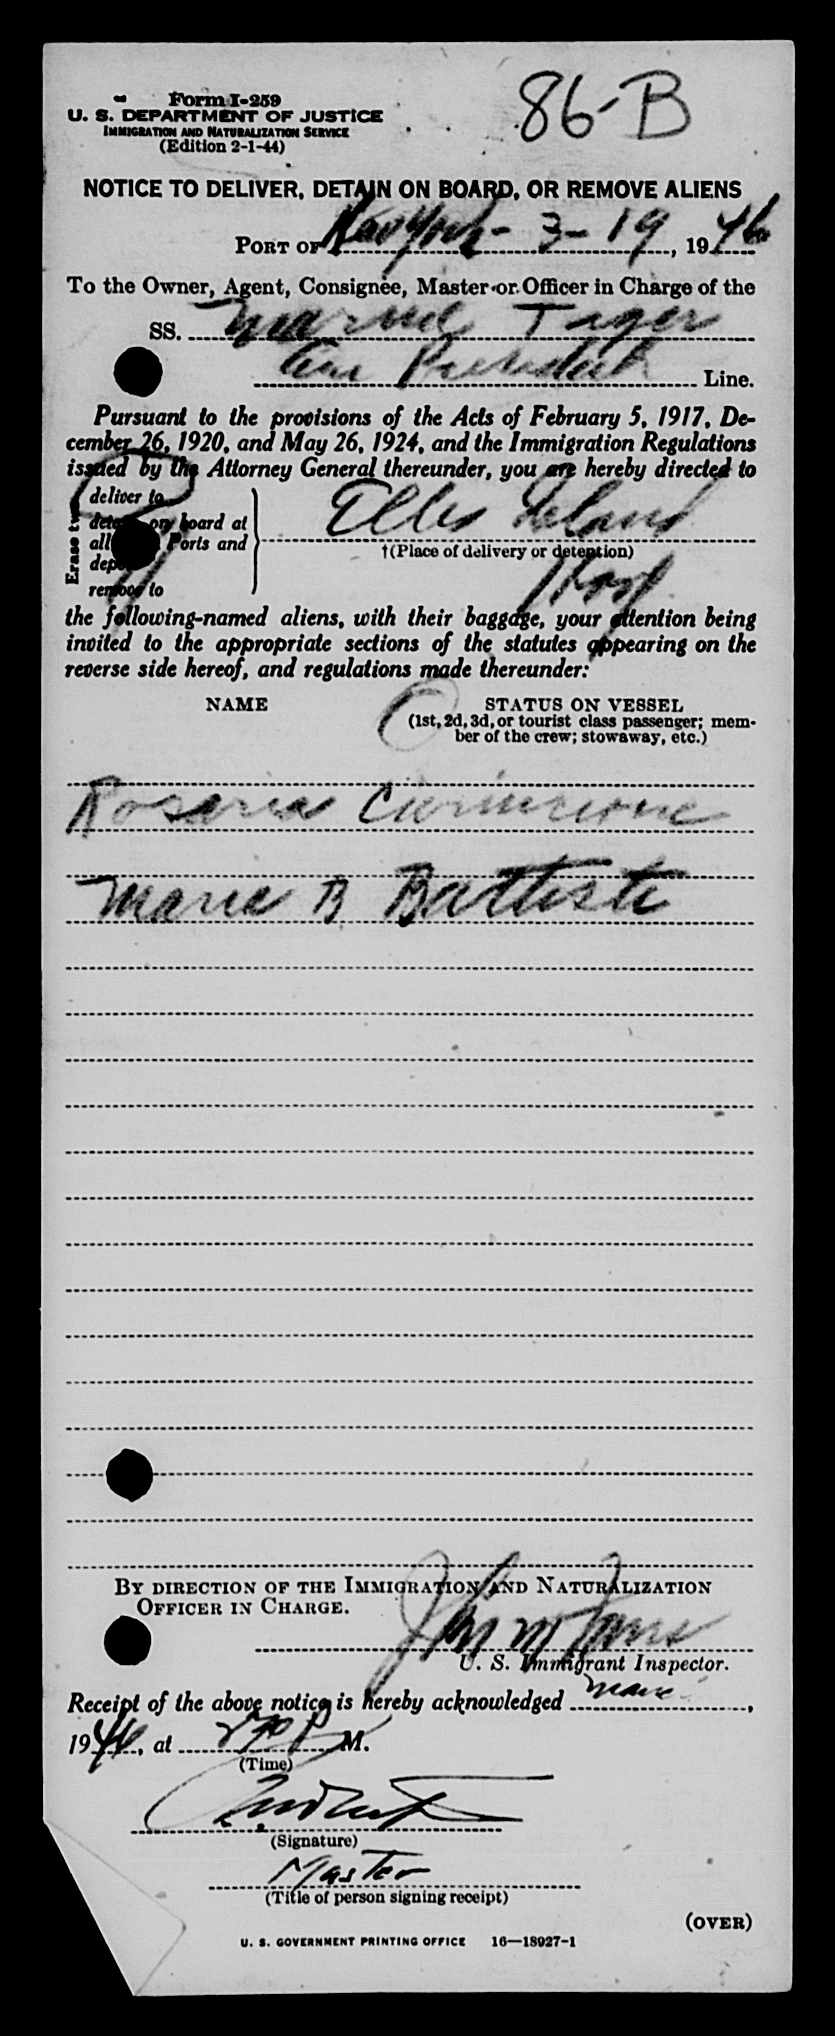 86-B
Form I-259
U. S. DEPARTMENT OF JUSTICE
IMMIGRATION AND NATURALIZATION SERVICE
(Edition 2-1-44)
NOTICE TO DELIVER, DETAIN ON BOARD, OR REMOVE ALIENS
PORT OF New York - 3-19, 1946
To the Owner, Agent, Consignee, Master or Officer in Charge of the
SS. Marine
Line.
Pursuant to the provisions of the Acts of February 5, 1917, De-
cember 26, 1920, and May 26, 1924, and the Immigration Regulations
issued by the Attorney General thereunder, you are hereby directed to
Erase two
deliver to
detain on board at
all Ports and
remove to
Ellis Island
†(Place of delivery or detention)
Hosp.
the following-named aliens, with their baggage, your attention being
invited to the appropriate sections of the statutes appearing on the
reverse side hereof, and regulations made thereunder:
NAME STATUS ON VESSEL
(1st, 2d, 3d, or tourist class passenger; mem-
ber of the crew; stowaway, etc.)
Rosaria
Marie B Battiste
BY DIRECTION OF THE IMMIGRATION AND NATURALIZATION
OFFICER IN CHARGE.
U. S. Immigrant Inspector.
Receipt of the above notice is hereby acknowledged
1946, at P M.
(Time)
(Signature)
Master
(Title of person signing receipt)
(OVER)
U. S. GOVERNMENT PRINTING OFFICE 16—18927-1